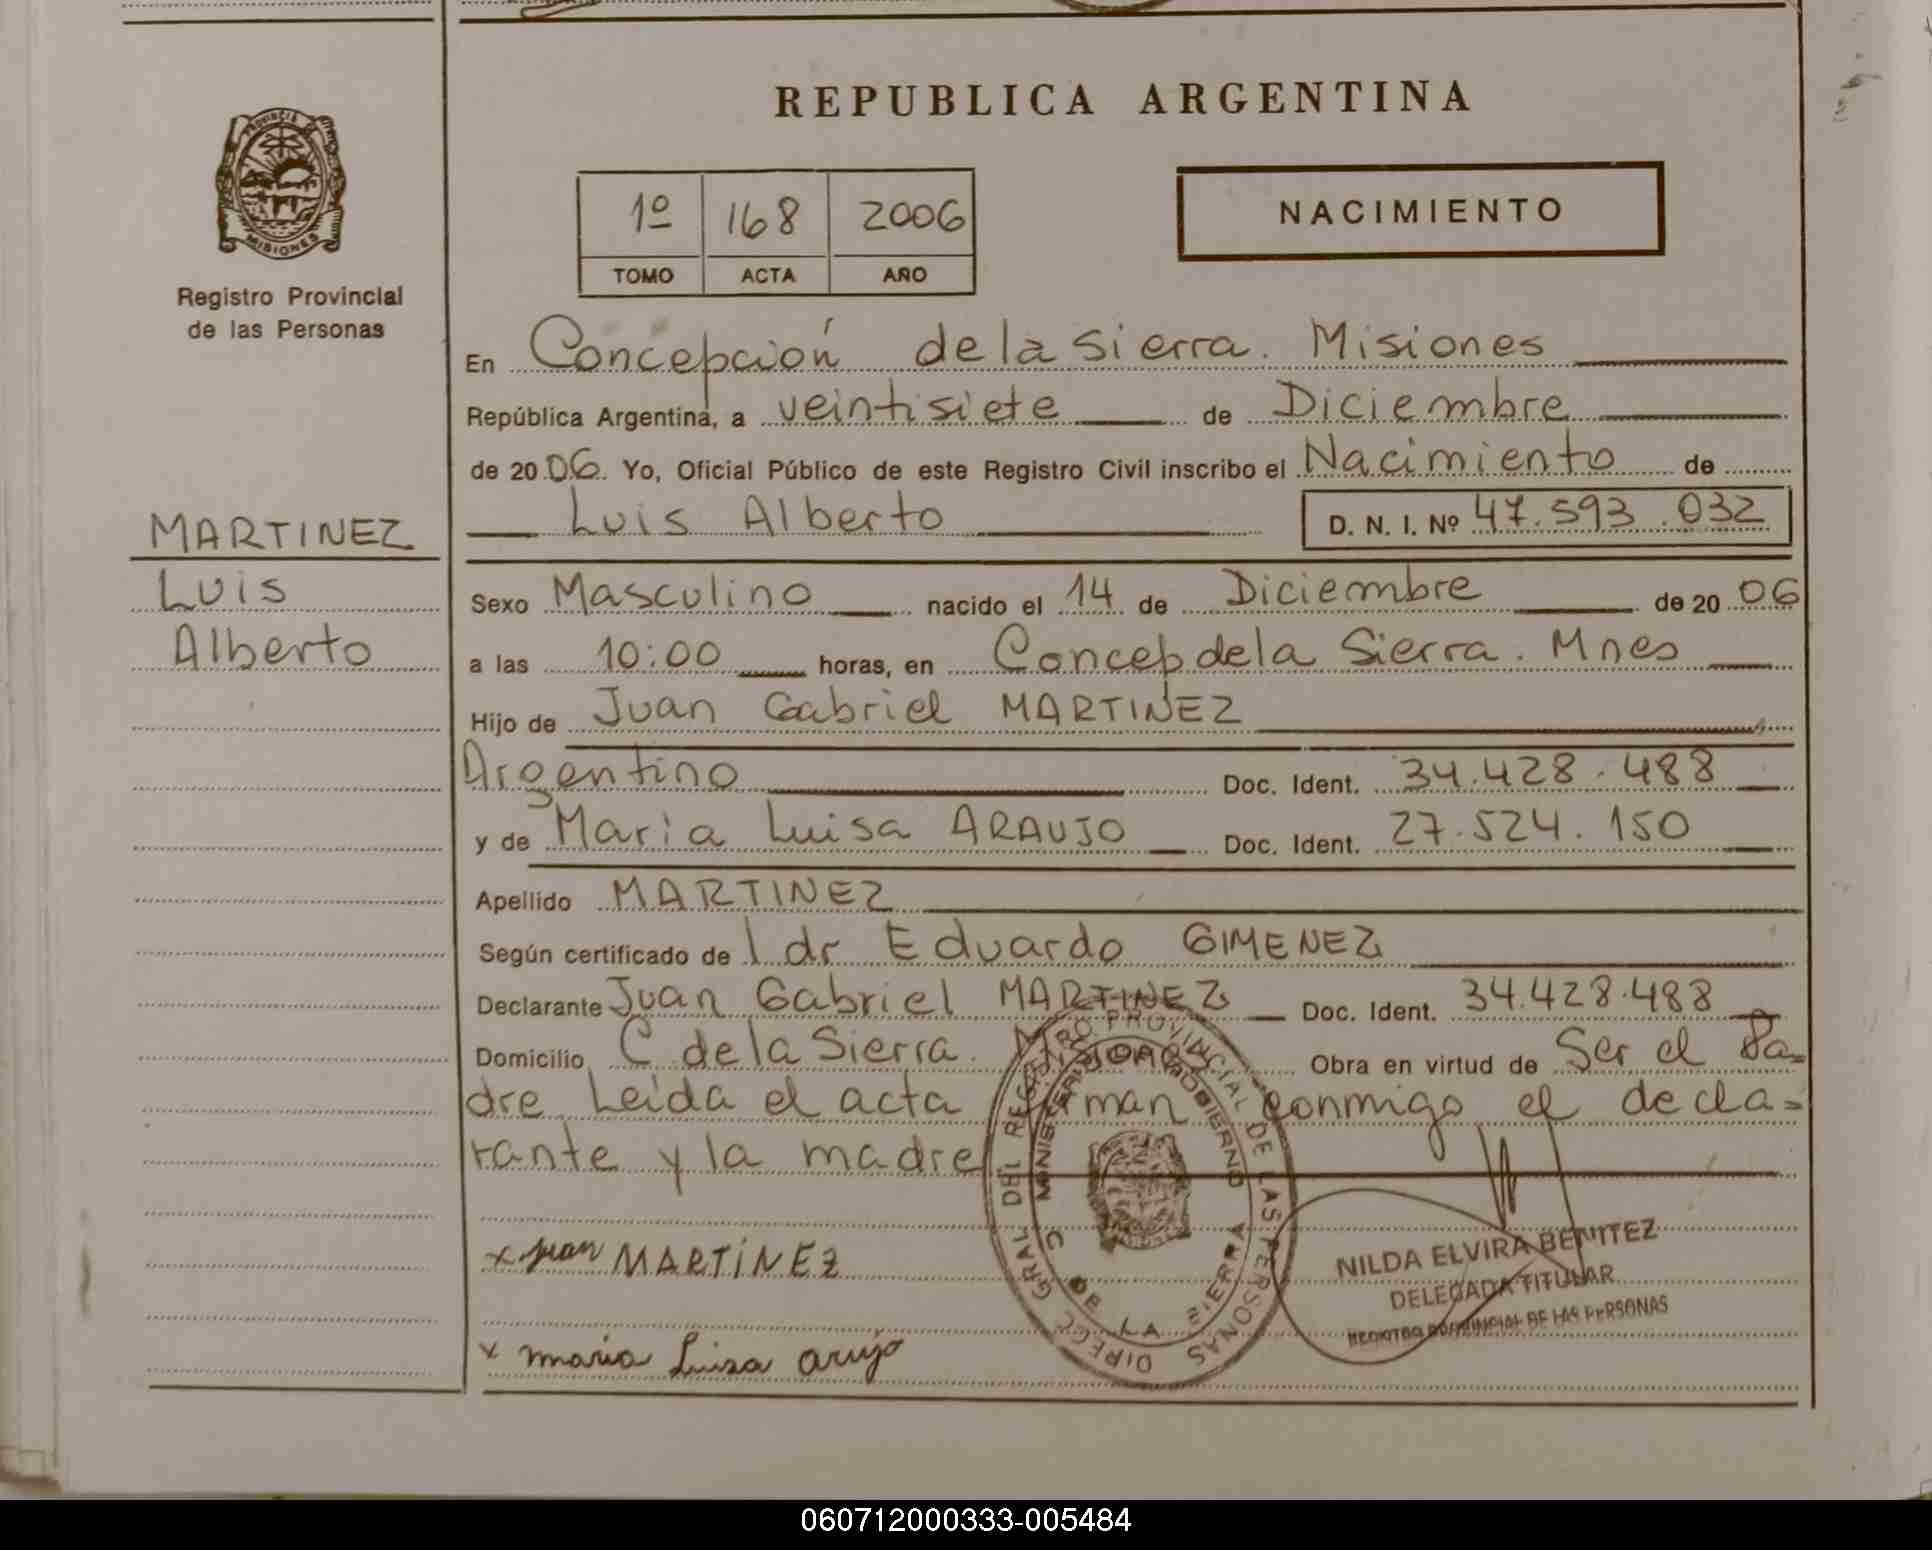 REPUBLICA ARGENTINA
PROVINCIA DE
MISIONES
Registro Provincial
de las Personas
1º 168 2006
TOMO ACTA AÑO
NACIMIENTO
En Concepción de la Sierra. Misiones
República Argentina, a veintisiete de Diciembre
de 2006. Yo, Oficial Público de este Registro Civil inscribo el Nacimiento de
Luis Alberto D. N. I. Nº 47.593.032
MARTINEZ
Luis
Alberto
Sexo Masculino nacido el 14 de Diciembre de 2006
a las 10:00 horas, en Concep de la Sierra. Mnes
Hijo de Juan Gabriel MARTINEZ
Argentino Doc. Ident. 34.428.488
y de Maria Luisa ARAUJO Doc. Ident. 27.524.150
Apellido MARTINEZ
Según certificado de l dr Eduardo GIMENEZ
Declarante Juan Gabriel MARTINEZ Doc. Ident. 34.428.488
Domicilio C de la Sierra. Obra en virtud de Ser el Pa=
dre. Leida el acta firman conmigo el decla=
rante y la madre
x Juan MARTÍNEZ
x maria Luisa arujo
DIREC. GRAL DEL REGISTRO PROVINCIAL DE LAS PERSONAS
MINISTERIO GOBIERNO
C DE LA SIERRA
NILDA ELVIRA BENITEZ
DELEGADA TITULAR
REGISTRO PROVINCIAL DE LAS PERSONAS
060712000333-005484